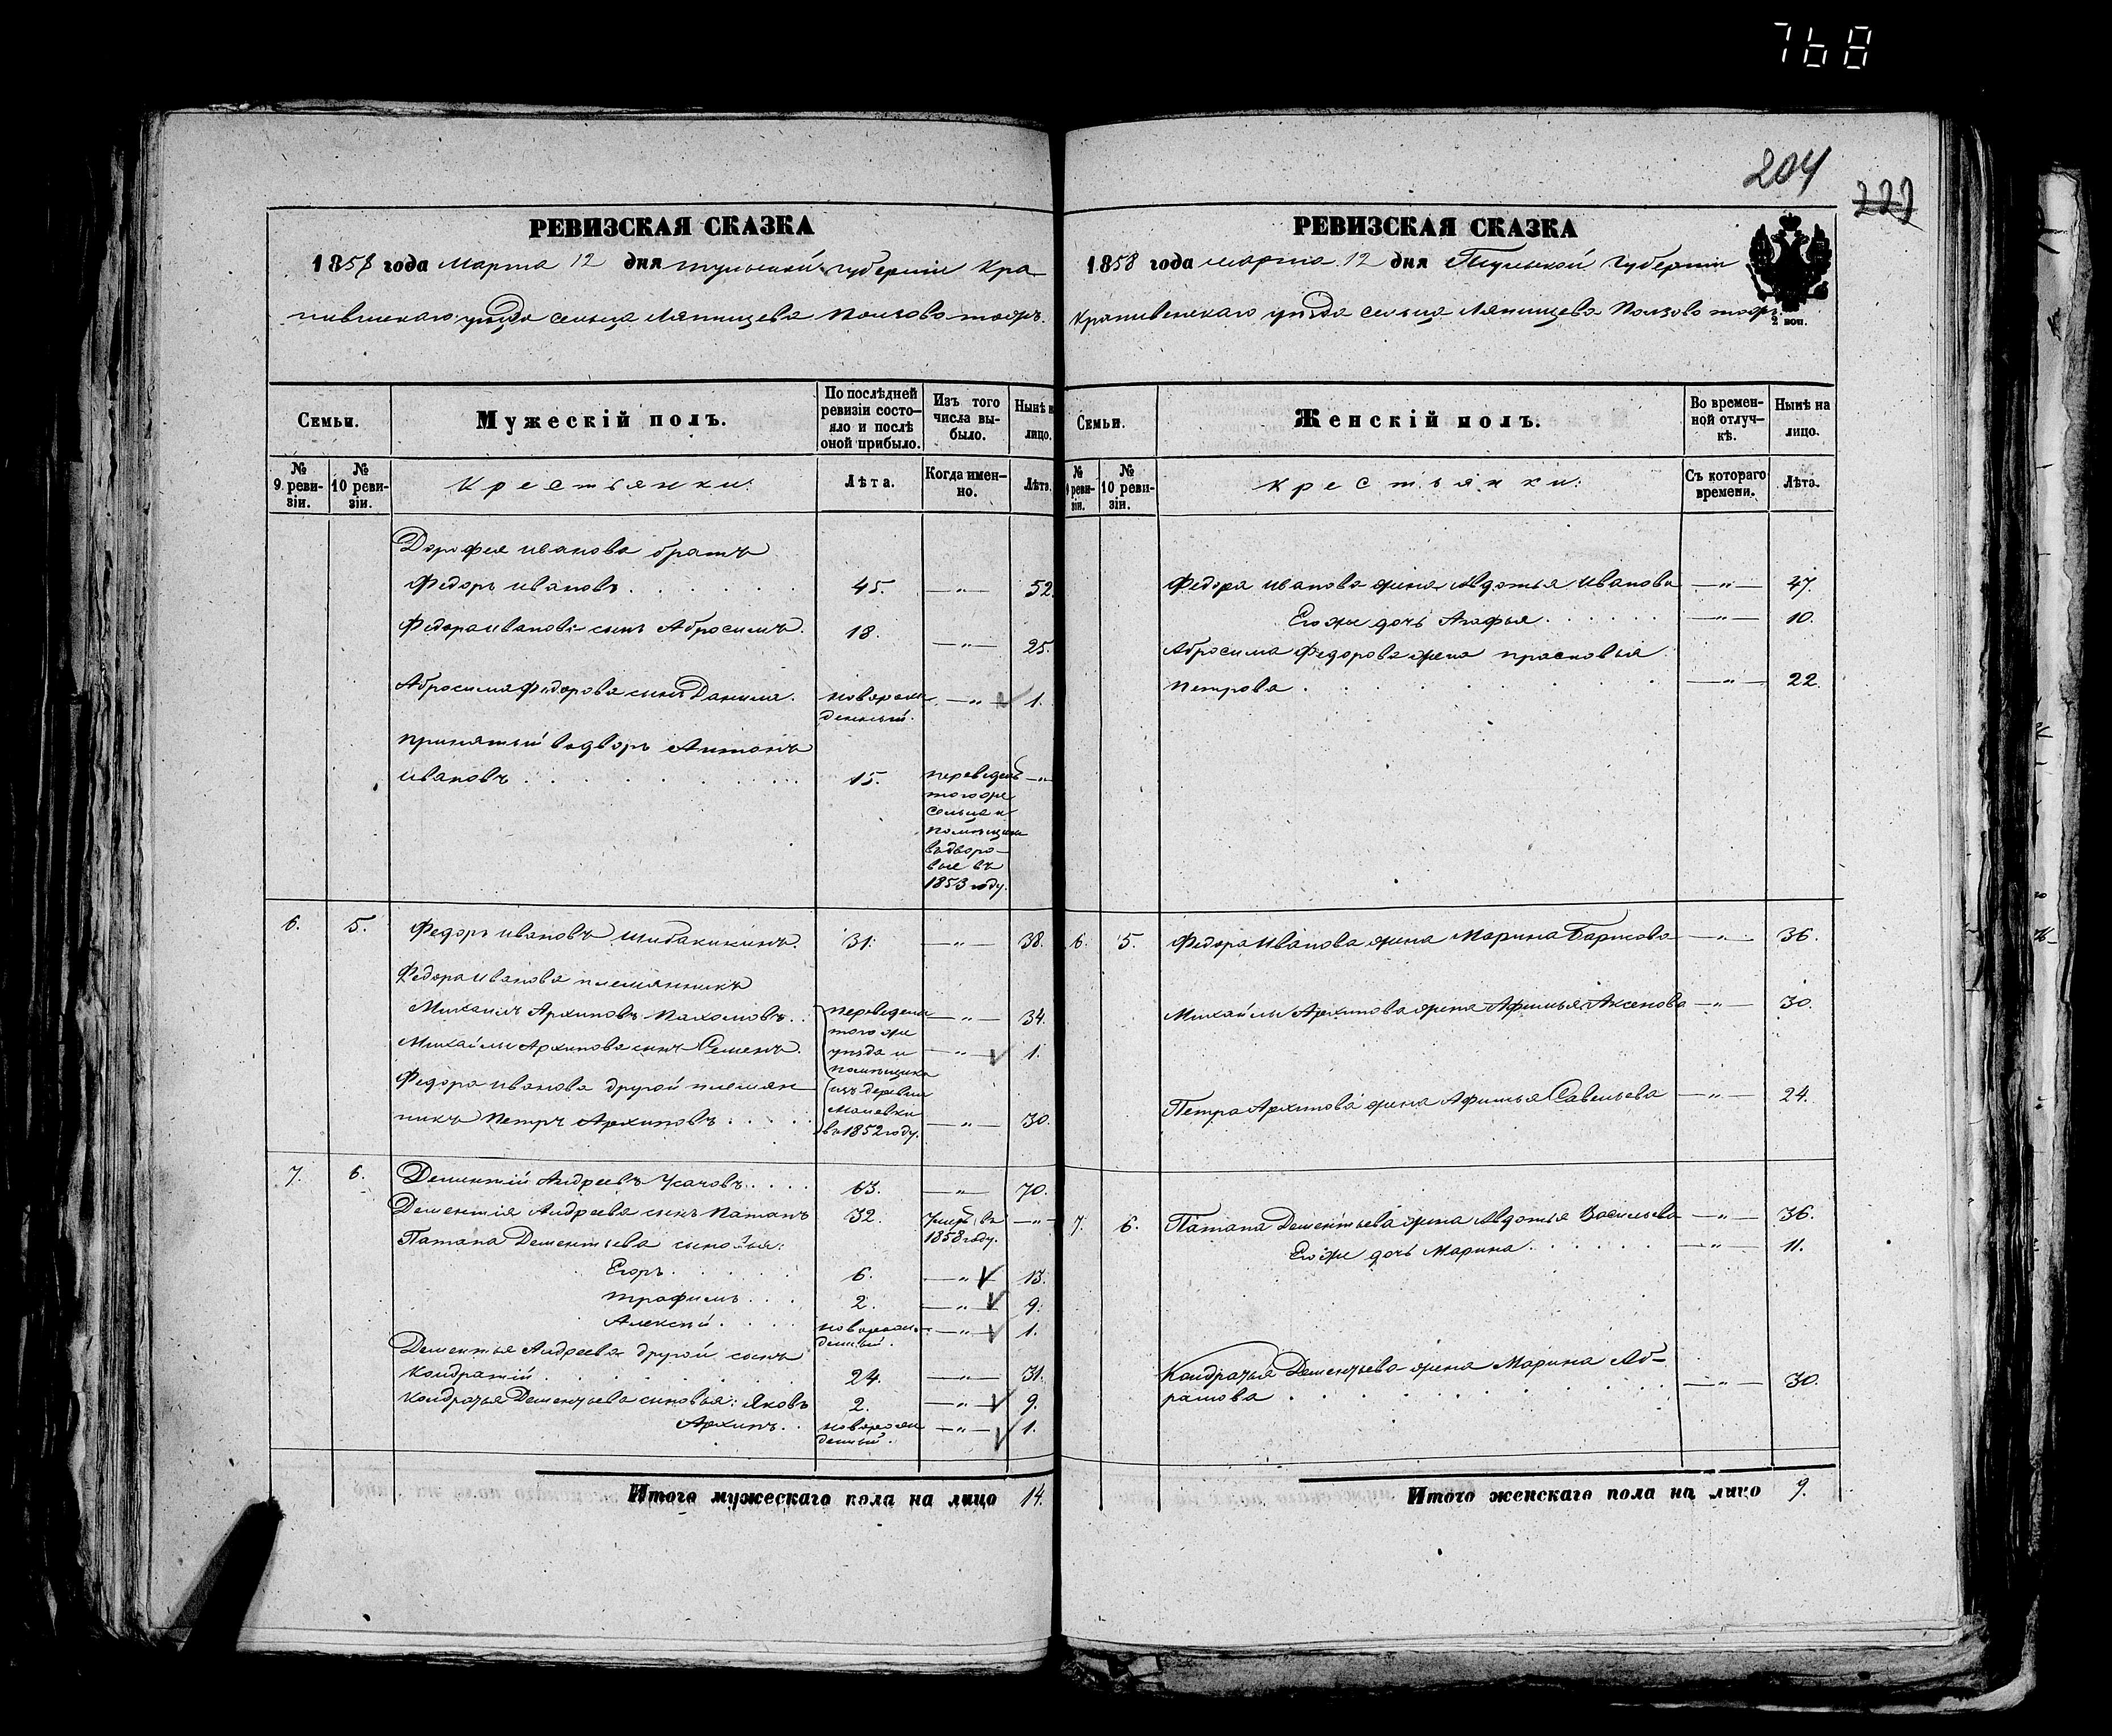 768
204
222
РЕВИЗСКАЯ СКАЗКА
1858 года Марта 12 дня Тульской губернiи Кра-
пивенскаго уѣзда сельца Ляпищева Ползово тожъ.
Семьи.
Мужескiй полъ.
По послѣдней ревизiи состо-
яло и послѣ оной прибыло.
Изъ того числа вы-
было.
Нынѣ на лицо.
№ 9. реви-
зiи.
№ 10 реви-
зiи.
Крестьянки:
Лѣта.
Когда имен-
но.
Лѣта.
Дорофея Иванова братъ
Федоръ Ивановъ . . . . . . 45. —"— 52.
Федора Иванова сынъ Абросимъ. 18. —"— 25.
Абросима Федорова сынъ Данила. новорож-
денный. —"— 1.
Принятый во дворъ Антонъ
Ивановъ . . . . . . . 15. переведенъ —"—
того же
сельца и
помѣщика
въ дворо-
вые въ
1853 году.
6. 5. Федоръ Ивановъ Шибакинъ. 31. —"— 38.
Федора Иванова племянникъ
Михаилъ Архиповъ Пахомовъ. . переведены —"— 34.
того же
Михайлы Архипова сынъ Семенъ. уѣзда и —"— 1.
помѣщика
Федора Иванова другой племян- изъ деревни
никъ Петръ Архиповъ . . . . въ 1852 году. —"— 30.
7. 6. Дементiй Андреевъ Усачовъ. . . . 63. —"— 70.
Дементiя Андреева сынъ Патапъ 32. Умеръ въ 1858 году. —"—
Патапа Дементьева сыновья:
Егоръ . . . . . 6. —"— 13.
Трафимъ . . . 2. —"— 9.
Алексѣй . . . . новорож-
денный. —"— 1.
Дементья Андреева другой сынъ
Кондратiй . . . . . . . 24. —"— 31.
Кондратья Дементьева сыновья: Яковъ 2. —"— 9.
Архипъ. . новорож-
денный. —"— 1.
Итого мужескаго пола на лицо 14.
РЕВИЗСКАЯ СКАЗКА
1858 года Марта 12 дня Тульской Губернiи
Крапивенскаго уѣзда сельца Ляпищева Ползово тожъ.
2 коп.
Семьи.
Женскiй полъ.
Во времен-
ной отлуч-
кѣ.
Нынѣ на лицо.
№ 9 реви-
зiи.
№ 10 реви-
зiи.
Крестьянки:
Съ котораго времени.
Лѣта.
Федора Иванова жена Авдотья Иванова —"— 47.
Его же дочь Агафья . . . . . . —"— 10.
Абросима Федорова жена Прасковья
Петрова . . . . . . . . . —"— 22.
6. 5. Федора Иванова жена Марина Барисова —"— 36.
Михайлы Архипова жена Афимья Аксенова —"— 30.
Петра Архипова жена Афимья Савельева —"— 24.
7. 6. Патапа Дементьева жена Авдотья Васильева —"— 36.
Его же дочь Марина . . . . . . —"— 11.
Кондратья Дементьева жена Марина Аб-
рамова . . . . . . . . . —"— 30.
Итого женскаго пола на лицо 9.